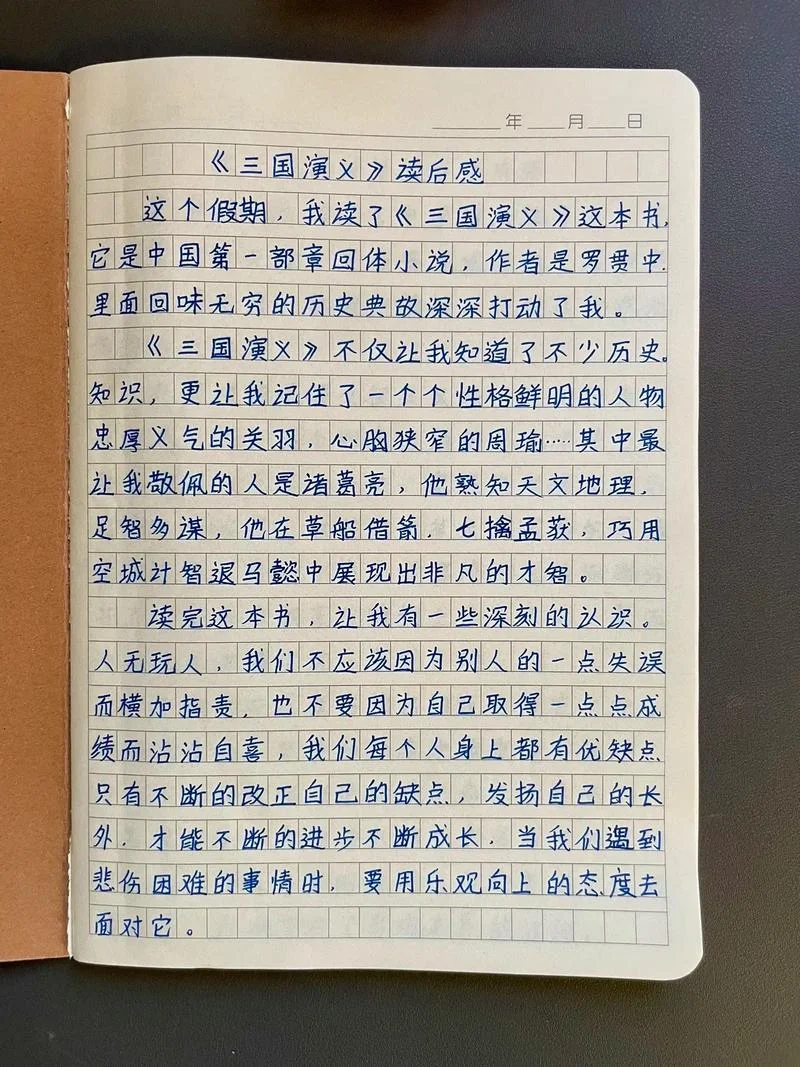 年 月 日
《三国演义》读后感
这个假期，我读了《三国演义》这本书，
它是中国第一部章回体小说，作者是罗贯中.
里面回味无穷的历史典故深深打动了我。
《三国演义》不仅让我知道了不少历史。
知识，更让我记住了一个个性格鲜明的人物
忠厚义气的关羽，心胸狭窄的周瑜……其中最
让我敬佩的人是诸葛亮，他熟知天文地理，
足智多谋，他在草船借箭，七擒孟获，巧用
空城计智退马懿中展现出非凡的才智。
读完这本书，让我有一些深刻的认识。
人无玩人，我们不应该因为别人的一点失误
而横加指责，也不要因为自己取得一点点成
绩而沾沾自喜，我们每个人身上都有优缺点
只有不断的改正自己的缺点，发扬自己的长
外，才能不断的进步不断成长，当我们遇到
悲伤困难的事情时，要用乐观向上的态度去
面对它。